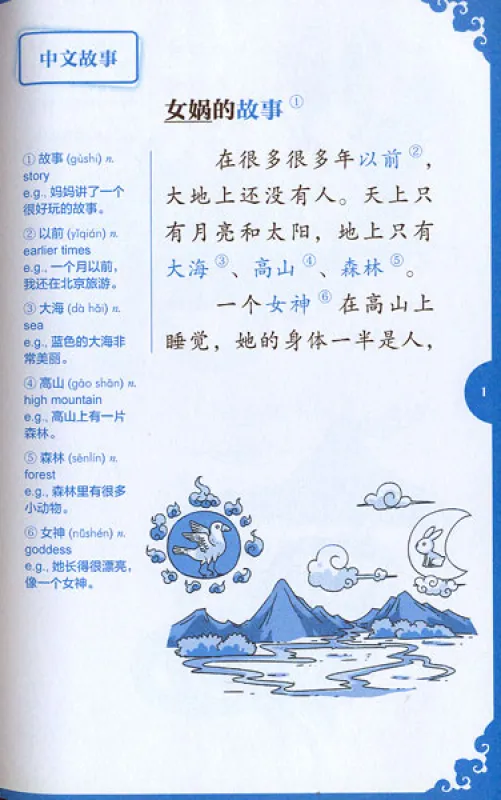 中文故事
女娲的故事 ①
在很多很多年以前 ②，
大地上还没有人。天上只
有月亮和太阳，地上只有
大海 ③、高山 ④、森林 ⑤。
一个女神 ⑥ 在高山上
睡觉，她的身体一半是人，
① 故事 (gùshi) n.
story
e.g., 妈妈讲了一个
很好玩的故事。
② 以前 (yǐqián) n.
earlier times
e.g., 一个月以前，
我还在北京旅游。
③ 大海 (dà hǎi) n.
sea
e.g., 蓝色的大海非
常美丽。
④ 高山 (gāo shān) n.
high mountain
e.g., 高山上有一片
森林。
⑤ 森林 (sēnlín) n.
forest
e.g., 森林里有很多
小动物。
⑥ 女神 (nǚshén) n.
goddess
e.g., 她长得很漂亮，
像一个女神。
1